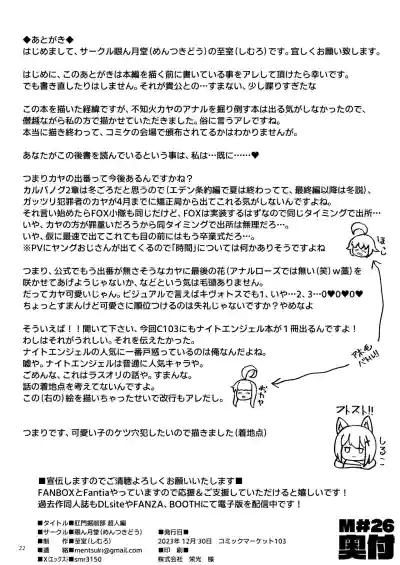 ◆あとがき◆
はじめまして、サークル眼ん月堂(めんつきどう)の至室(しむろ)です。宜しくお願い致します。
はじめに、このあとがきは本編を描く前に書いている事をアレして頂けたら幸いです。
でも書き直したりはしません。それが貴公との…すまない、少し蹲りすぎたな
この本を描いた経緯ですが、不知火カヤのアナルを掘り倒す本は出る気がしなかったので、
僭越ながら私の方で描かせていただきました。俗に言うアレですね。
本当に描き終わって、コミケの会場で頒布されてるかはわかりませんが。
あなたがこの後書を読んでいるという事は、私は…既に……♥
つまりカヤの出番って今後あるんですかね?
カルバノグ2章は冬ごろだと思うので(エデン条約編で夏は終わってて、最終編以降は冬説)、
ガッツリ犯罪者のカヤが4月までに矯正局から出てこれる気がしないんですよね。
それ言い始めたらFOX小隊も同じだけど、FOXは実装するはずなので同じタイミングで出所…
いや、カヤの方が罪重いだろうから同タイミングで出所は無理だろ…。
いや、仮に最速で出てこれても目の前にはもう卒業式だろ…。
※PVにヤングおじさんが出てくるので「時間」については何かありそうですよね
つまり、公式でもう出番が無さそうなカヤに最後の花(アナルローズでは無い(笑)w藁)を
咲かせてあげようじゃないか、などという気は毛頭ありません。
だってカヤ可愛いじゃん。ビジュアルで言えばキヴォトスでも1、いや…2、3…0♥0♥0♥
ちょっとすまんけど可愛さに順位つけるのは失礼じゃないですか?やめなよ
そういえば!!聞いて下さい、今回C103にもナイトエンジェル本が1冊出るんですよ!
わしはそれがうれしい。それを伝えたかった。
ナイトエンジェルの人気に一番戸惑っているのは俺なんだよね。
嘘や。ナイトエンジェルは普通に人気キャラや。
ごめんな、これはラスオリの話や。すまんな。
話の着地点を考えてないんですよ。
この(右の)絵を描いちゃったせいで改行もアレだし。
つまりです、可愛い子のケツ穴犯したいので描きました(着地点)
アホ毛
バトル!!
ストスト!!
しろこ
■宣伝しますのでご清聴よろしくお願いいたします■
FANBOXとFantiaやっていますので応援&ご支援していただけると嬉しいです!
過去作同人誌もDLsiteやFANZA、BOOTHにて電子版を配信中です!
■タイトル■肛門掘削部 超人編
■サークル■眼ん月堂(めんつきどう)
■制 作■至室(しむろ)
■連 絡■mentsuki@gmail.com
■X(エックス)■smr3150
■発行日■
2023年12月30日 コミックマーケット103
■印 刷■
株式会社 栄光 様
M#26
奥付
22